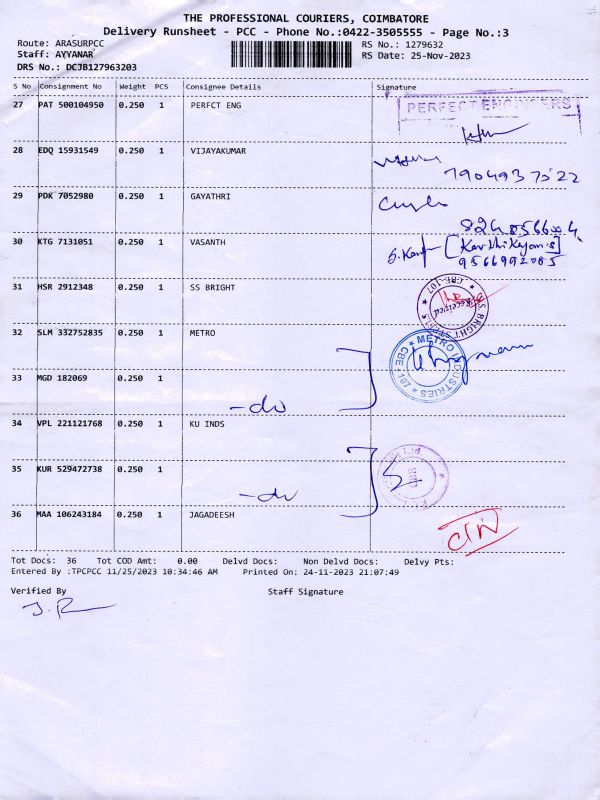 THE PROFESSIONAL COURIERS, COIMBATORE
Delivery Runsheet - PCC - Phone No.:0422-3505555 - Page No.:3
Route: ARASURPCC RS No.: 1279632
Staff: AYYANAR RS Date: 25-Nov-2023
DRS No.: DCJB127963203
S No Consignment No Weight PCS Consignee Details Signature
27 PAT 500104950 0.250 1 PERFCT ENG
PERFECT ENGINEERS
28 EDQ 15931549 0.250 1 VIJAYAKUMAR
7904937522
29 PDK 7052980 0.250 1 GAYATHRI
30 KTG 7131051 0.250 1 VASANTH
[Karthikeyan.s]
9566992085
31 HSR 2912348 0.250 1 SS BRIGHT
S.S. BRIGHT STEELS ★ CBE-107 ★
Received
32 SLM 332752835 0.250 1 METRO
★ METRO INDUSTRIES ★ CBE - 107
33 MGD 182069 0.250 1
-do
34 VPL 221121768 0.250 1 KU INDS
35 KUR 529472738 0.250 1
-do
36 MAA 106243184 0.250 1 JAGADEESH
Tot Docs: 36 Tot COD Amt: 0.00 Delvd Docs: Non Delvd Docs: Delvy Pts:
Entered By :TPCPCC 11/25/2023 10:34:46 AM Printed On: 24-11-2023 21:07:49
Verified By Staff Signature